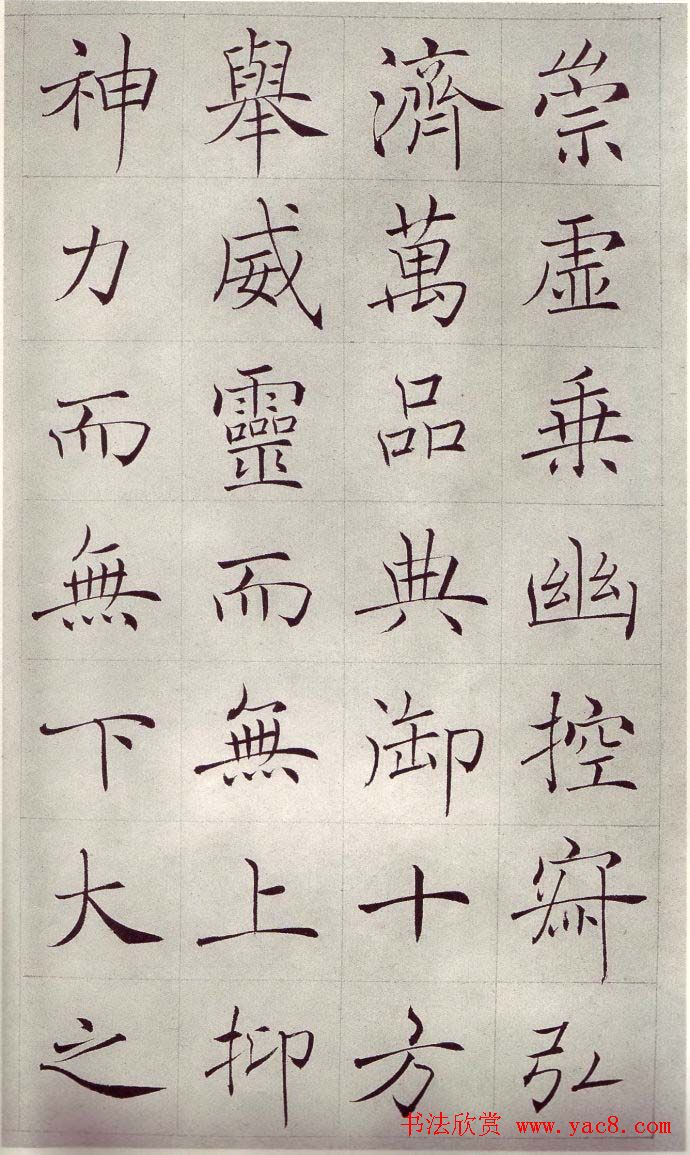 崇虛乗幽控寂弘
濟萬品典御十方
舉威靈而無上抑
神力而無下大之
书法欣赏 www.yac8.com